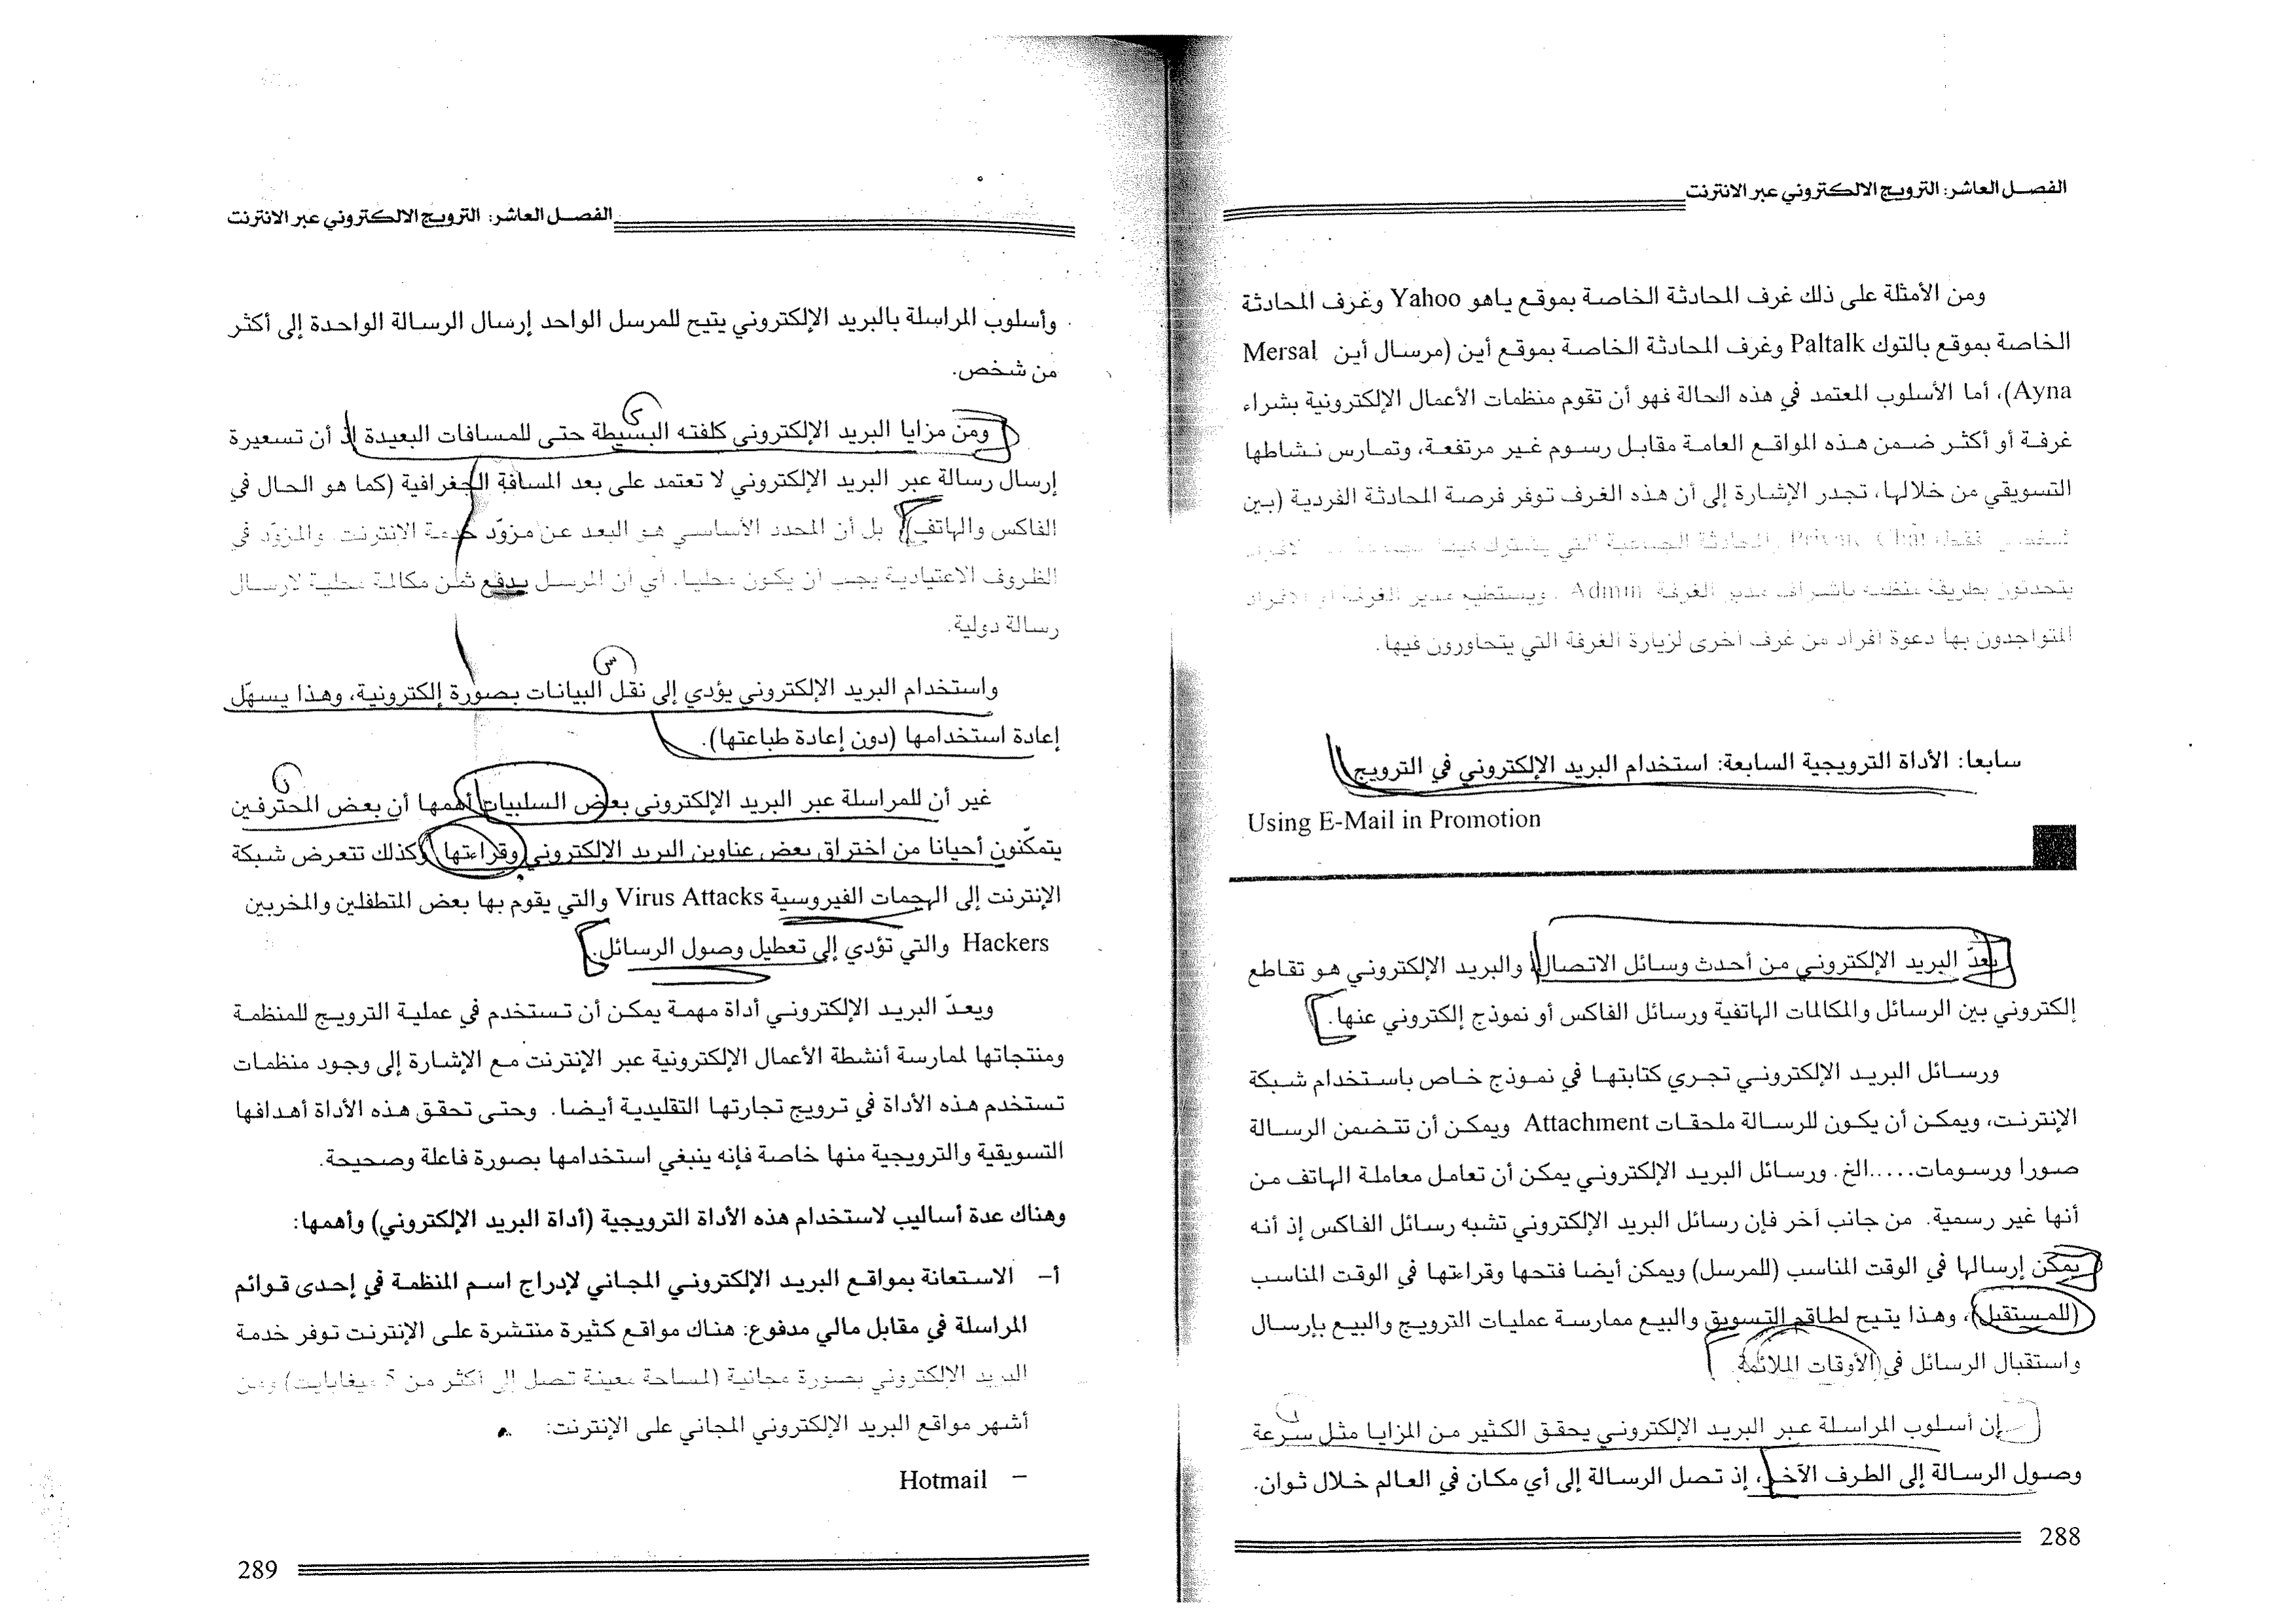 الفصل العاشر: الترويج الالكتروني عبر الانترنت
ومن الأمثلة على ذلك غرف المحادثة الخاصة بموقع ياهو Yahoo وغرف المحادثة
الخاصة بموقع بالتوك Paltalk وغرف المحادثة الخاصة بموقع أين (مرسال أين Mersal
Ayna)، أما الأسلوب المعتمد في هذه الحالة فهو أن تقوم منظمات الأعمال الإلكترونية بشراء
غرفة أو أكثر ضمن هذه المواقع العامة مقابل رسوم غير مرتفعة، وتمارس نشاطها
التسويقي من خلالها، تجدر الإشارة إلى أن هذه الغرف توفر فرصة المحادثة الفردية (بين
فقط Private Chat والمحادثة الجماعية التي يشترك فيها
يتحدثون بطريقة منظمة بإشراف مدير الغرفة Admin، ويستطيع مدير الغرفة أو الافراد
المتواجدون بها دعوة افراد من غرف اخرى لزيارة الغرفة التي يتحاورون فيها.
سابعا: الأداة الترويجية السابعة: استخدام البريد الإلكتروني في الترويج
Using E-Mail in Promotion
يعدّ البريد الإلكتروني من أحدث وسائل الاتصال، والبريد الإلكتروني هو تقاطع
إلكتروني بين الرسائل والمكالمات الهاتفية ورسائل الفاكس أو نموذج إلكتروني عنها.
ورسائل البريد الإلكتروني تجري كتابتها في نموذج خاص باستخدام شبكة
الإنترنت، ويمكن أن يكون للرسالة ملحقات Attachment ويمكن أن تتضمن الرسالة
صورا ورسومات.....الخ. ورسائل البريد الإلكتروني يمكن أن تعامل معاملة الهاتف من
أنها غير رسمية. من جانب آخر فإن رسائل البريد الإلكتروني تشبه رسائل الفاكس إذ أنه
يمكن إرسالها في الوقت المناسب (للمرسل) ويمكن أيضا فتحها وقراءتها في الوقت المناسب
(للمستقبل)، وهذا يتيح لطاقم التسويق والبيع ممارسة عمليات الترويج والبيع بإرسال
واستقبال الرسائل في الأوقات الملائمة.
إن أسلوب المراسلة عبر البريد الإلكتروني يحقق الكثير من المزايا مثل سرعة
وصول الرسالة إلى الطرف الآخر، إذ تصل الرسالة إلى أي مكان في العالم خلال ثوان.
288
الفصل العاشر: الترويج الالكتروني عبر الانترنت
وأسلوب المراسلة بالبريد الإلكتروني يتيح للمرسل الواحد إرسال الرسالة الواحدة إلى أكثر
من شخص.
ومن مزايا البريد الإلكتروني كلفته البسيطة حتى للمسافات البعيدة إذ أن تسعيرة
إرسال رسالة عبر البريد الإلكتروني لا تعتمد على بعد المسافة الجغرافية (كما هو الحال في
الفاكس والهاتف) بل أن المحدد الأساسي هو البعد عن مزوّد خدمة الإنترنت. والمزوّد في
الظروف الاعتيادية يجب أن يكون محليا. أي أن المرسل يدفع ثمن مكالمة محلية لارسال
رسالة دولية.
واستخدام البريد الإلكتروني يؤدي إلى نقل البيانات بصورة إلكترونية، وهذا يسهّل
إعادة استخدامها (دون إعادة طباعتها).
غير أن للمراسلة عبر البريد الإلكتروني بعض السلبيات أهمها أن بعض المحترفين
يتمكّنون أحيانا من اختراق بعض عناوين البريد الالكتروني وقراءتها وكذلك تتعرض شبكة
الإنترنت إلى الهجمات الفيروسية Virus Attacks والتي يقوم بها بعض المتطفلين والمخربين
Hackers والتي تؤدي إلى تعطيل وصول الرسائل.
ويعدّ البريد الإلكتروني أداة مهمة يمكن أن تستخدم في عملية الترويج للمنظمة
ومنتجاتها لممارسة أنشطة الأعمال الإلكترونية عبر الإنترنت مع الإشارة إلى وجود منظمات
تستخدم هذه الأداة في ترويج تجارتها التقليدية أيضا. وحتى تحقق هذه الأداة أهدافها
التسويقية والترويجية منها خاصة فإنه ينبغي استخدامها بصورة فاعلة وصحيحة.
وهناك عدة أساليب لاستخدام هذه الأداة الترويجية (أداة البريد الإلكتروني) وأهمها:
أ- الاستعانة بمواقع البريد الإلكتروني المجاني لإدراج اسم المنظمة في إحدى قوائم
المراسلة في مقابل مالي مدفوع: هناك مواقع كثيرة منتشرة على الإنترنت توفر خدمة
البريد الإلكتروني بصورة مجانية (لمساحة معينة تصل إلى أكثر من 5 ميغابايت) ومن
أشهر مواقع البريد الإلكتروني المجاني على الإنترنت:
- Hotmail
289